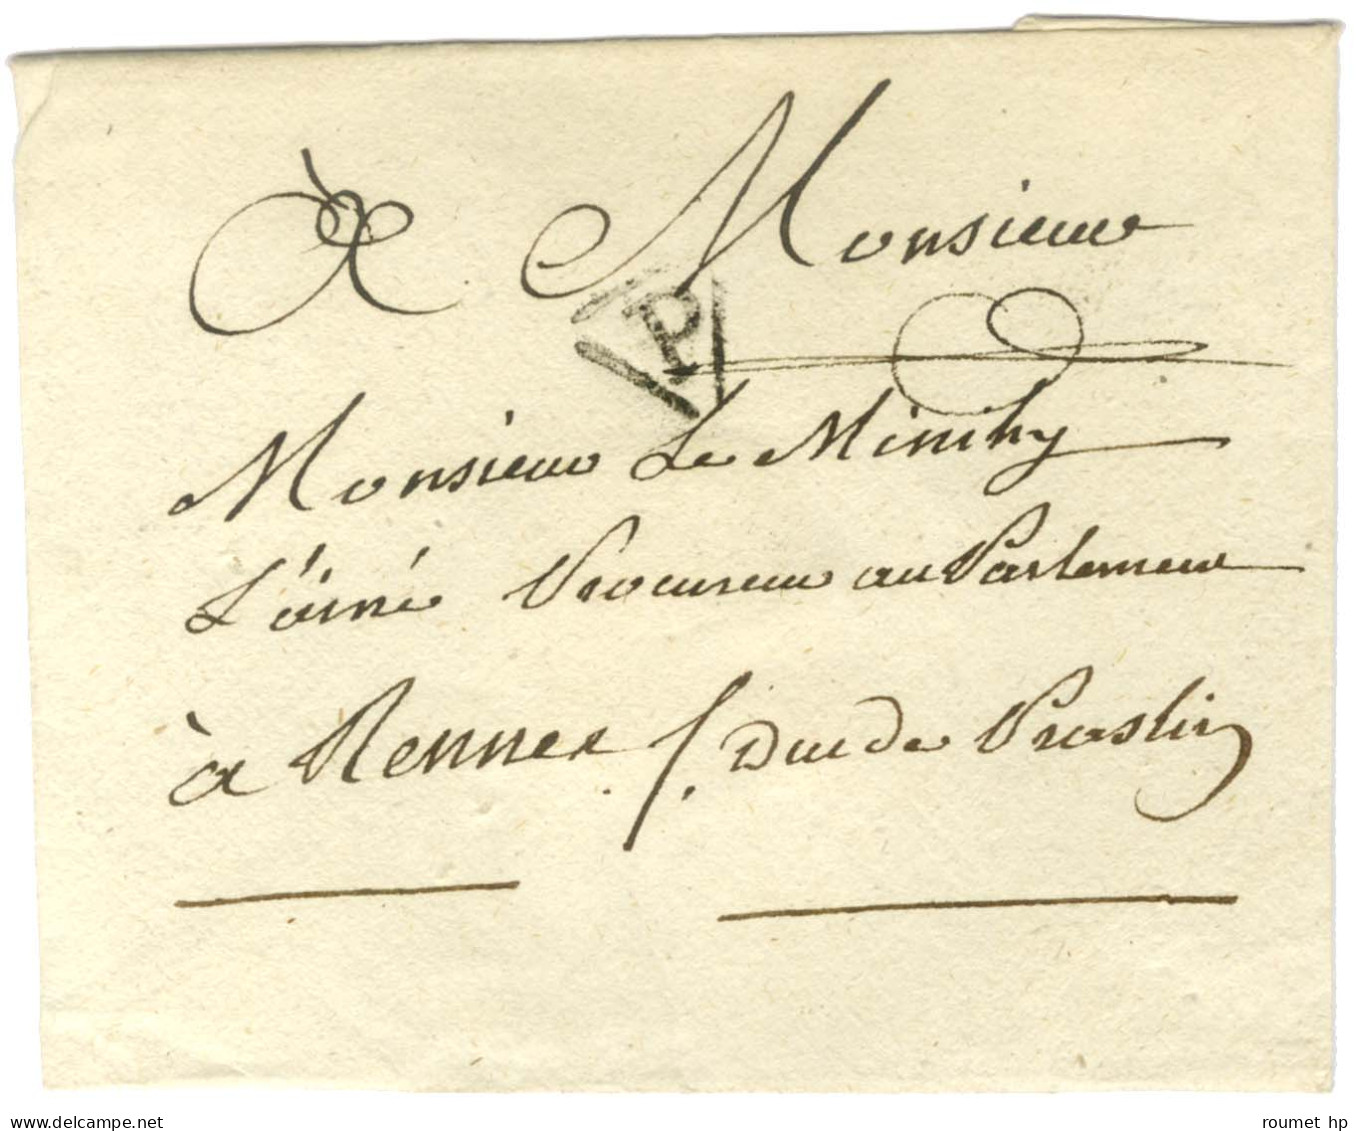 A Monsieur
P
Monsieur Le Minihy
L'ainé Procureur au Parlement
à Rennes /. Duc de Praslin
delcampe.net
roumet hp